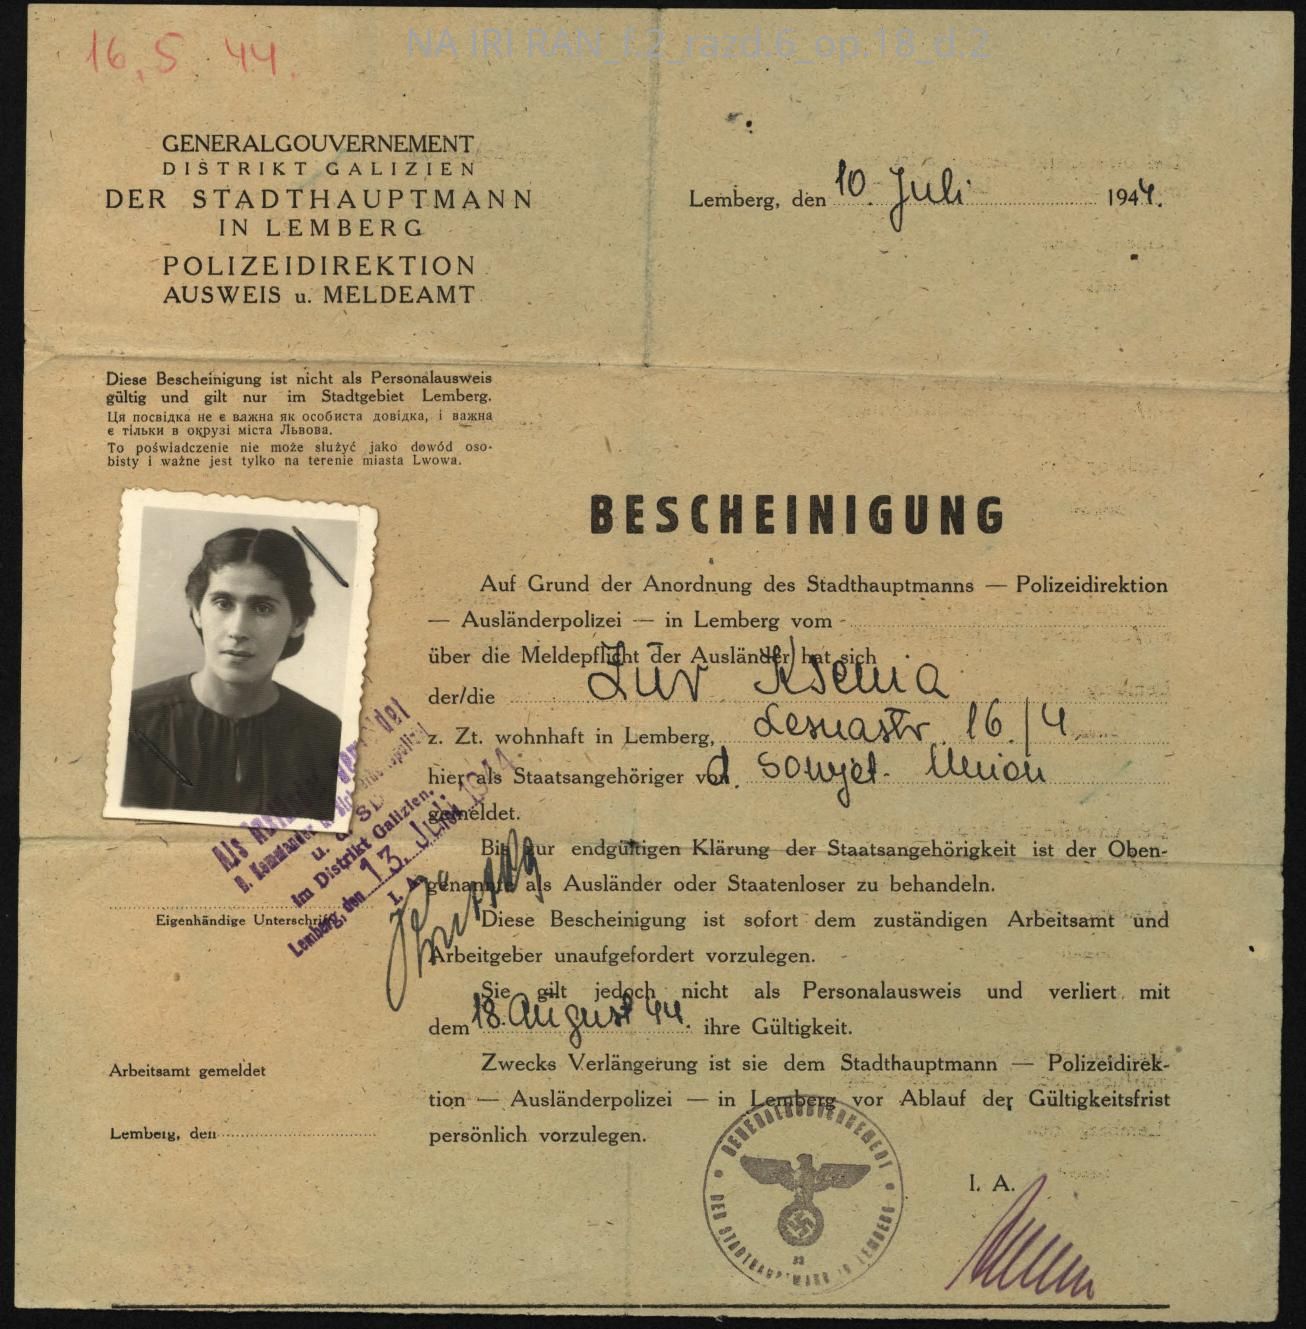 NA IRI RAN_f.2_razd.6_op.18_d.2
16.5.44.
GENERALGOUVERNEMENT
DISTRIKT GALIZIEN
DER STADTHAUPTMANN
IN LEMBERG
POLIZEIDIREKTION
AUSWEIS u. MELDEAMT
Lemberg, den 10. Juli 1944.
Diese Bescheinigung ist nicht als Personalausweis
gültig und gilt nur im Stadtgebiet Lemberg.
Ця посвідка не є важна як особиста довідка, і важна
є тільки в окрузі міста Львова.
To poświadczenie nie może służyć jako dowód oso-
bisty i ważne jest tylko na terenie miasta Lwowa.
BESCHEINIGUNG
Auf Grund der Anordnung des Stadthauptmanns — Polizeidirektion
— Ausländerpolizei — in Lemberg vom -
über die Meldepflicht der Ausländer hat sich
der/die Zur Ksenia
z. Zt. wohnhaft in Lemberg, Lesnastr. 16/4
hier als Staatsangehöriger von d. Sowjet-Union
gemeldet.
Bis zur endgültigen Klärung der Staatsangehörigkeit ist der Oben-
genannte als Ausländer oder Staatenloser zu behandeln.
Diese Bescheinigung ist sofort dem zuständigen Arbeitsamt und
Arbeitgeber unaufgefordert vorzulegen.
Sie gilt jedoch nicht als Personalausweis und verliert mit
dem 18. August 44. ihre Gültigkeit.
Zwecks Verlängerung ist sie dem Stadthauptmann — Polizeidirek-
tion — Ausländerpolizei — in Lemberg vor Ablauf der Gültigkeitsfrist
persönlich vorzulegen.
I. A.
Als
Kommandeur
u. d. SD
im Distrikt Galizien.
Lemberg, den 13. Juli 1944
I. A.
Eigenhändige Unterschrift
Arbeitsamt gemeldet
Lemberg, den
GENERALGOUVERNEMENT
DER STADTHAUPTMANN IN LEMBERG